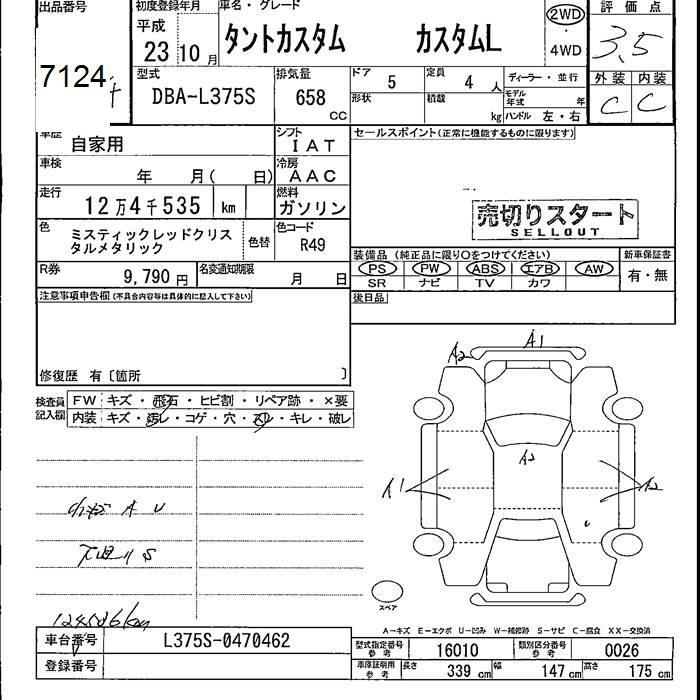 出品番号
7124
初度登録年月
平成
23 10 月
車名・グレード
タントカスタム カスタムL
2WD
・
4WD
評価点
3.5
外装 内装
C C
型式
DBA-L375S
排気量
658
CC
ドア
5
定員
4 人
形状
積載
kg
ディーラー・並行
モデル年式 年
ハンドル 左・右
車歴
自家用
シフト
IAT
車検
年 月( 日)
冷房
AAC
走行
12万4千535 km
燃料
ガソリン
色
ミスティックレッドクリス
タルメタリック
色替
色コード
R49
R券
9,790 円
名変通知期限
月 日
セールスポイント(正常に機能するものに限ります)
売切りスタート
SELLOUT
装備品 (純正品に限り○をつけてください)
新車保証書
PS PW ABS エアB AW
有・無
SR ナビ TV カワ
後日品
注意事項申告欄(不具合内容等は具体的に記入して下さい)
修復歴 有〔箇所 〕
検査員
記入欄
FW キズ・飛石・ヒビ割・リペア跡・×要
内装 キズ・汚レ・コゲ・穴・スレ・キレ・破レ
A1
A2
A2
A1
A2
小キズ A U
下廻り S
スペア
A-キズ E-エクボ U-凹み W-補修跡 S-サビ C-腐食 XX-交換済
車台番号
L375S-0470462
登録番号
型式指定番号
参考
16010
類別区分番号
参考
0026
車庫証明用
参考
長さ 339 cm 幅 147 cm 高さ 175 cm